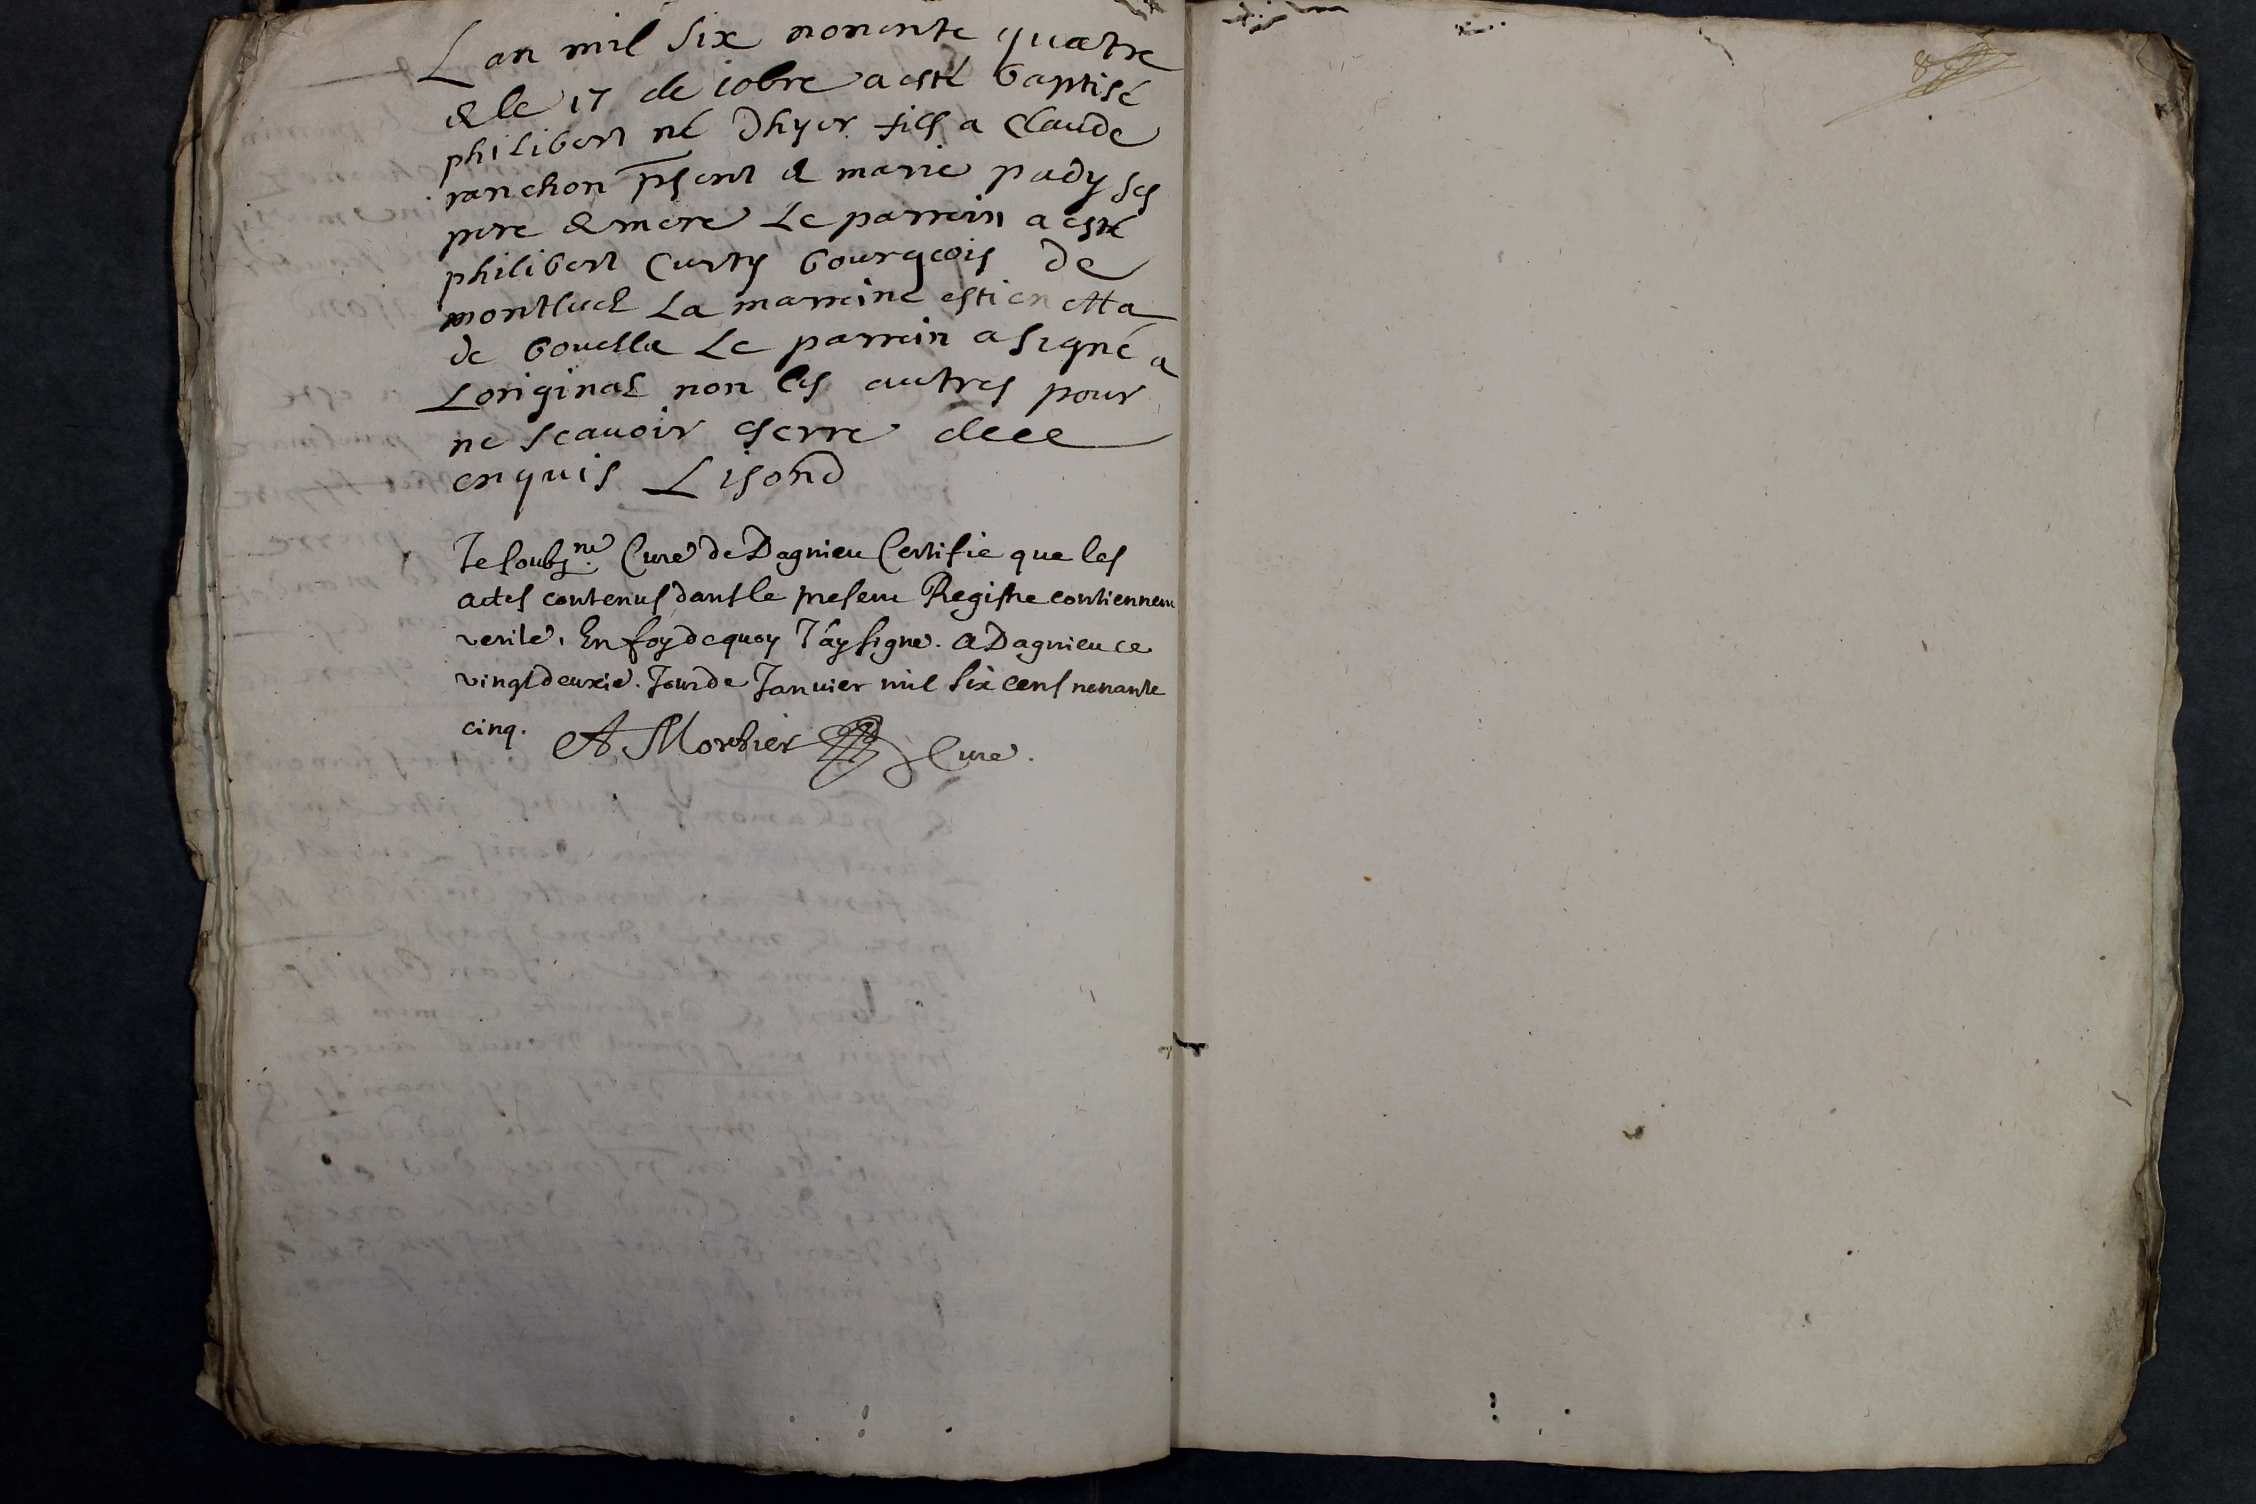 Lan mil six nonente quatre
& le 17 de 10bre a esté baptisé
philibert né dhyer fils a Claude
ranchon pṡent & marie pady ses
pere & mere Le parrein a esté
philibert Curty bourgeois de
montluel La marreine estienetta
de bouella Le parrein a signé a
Loriginal non les autres pour
ne scauoir escrre de ce
enquis Lisond
Je soubz.ne Curé de Dagnieu Certifie que les
actes contenus dans le present Registre contiennent
verite. En foy de quoy J'ay signé. A Dagnieu ce
vingtdeuxie. Jour de Januier mil six cens nonante
cinq.
A. Morthier Curé.
8